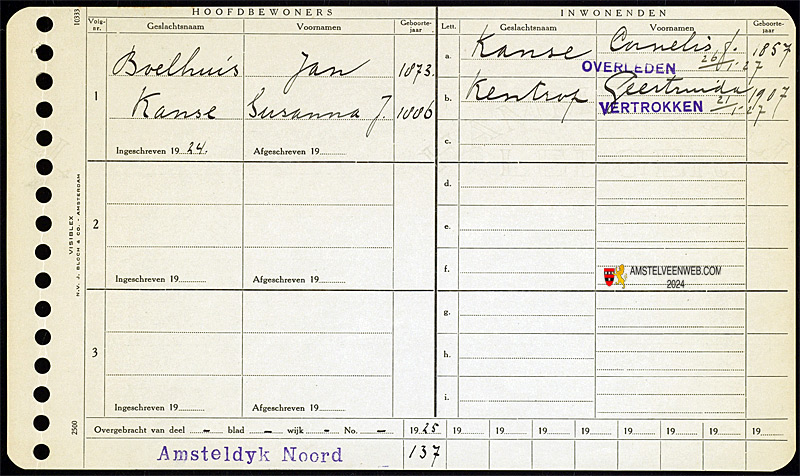 HOOFDBEWONERS
Volg-nr.
Geslachtsnaam
Voornamen
Geboorte-jaar
1
Boelhuis Jan 1873.
Kanse Susanna J.
Ingeschreven 1924.
Afgeschreven 19
2
Ingeschreven 19
Afgeschreven 19
3
Ingeschreven 19
Afgeschreven 19
INWONENDEN
Lett.
Geslachtsnaam
Voornamen
Geboorte-jaar
a. Kanse Cornelis J. 1857
OVERLEDEN 26/1-27
b. Kentrop Geertruida 1907
VERTROKKEN 21/1-27
c.
d.
e.
f.
AMSTELVEENWEB.COM
2024
g.
h.
i.
Overgebracht van deel – blad – wijk – No. – 1925 19 19 19 19 19 19 19 19
Amsteldyk Noord 137
10333
VISIBLEX
N.V. J. BLOCH & CO. - AMSTERDAM
2500